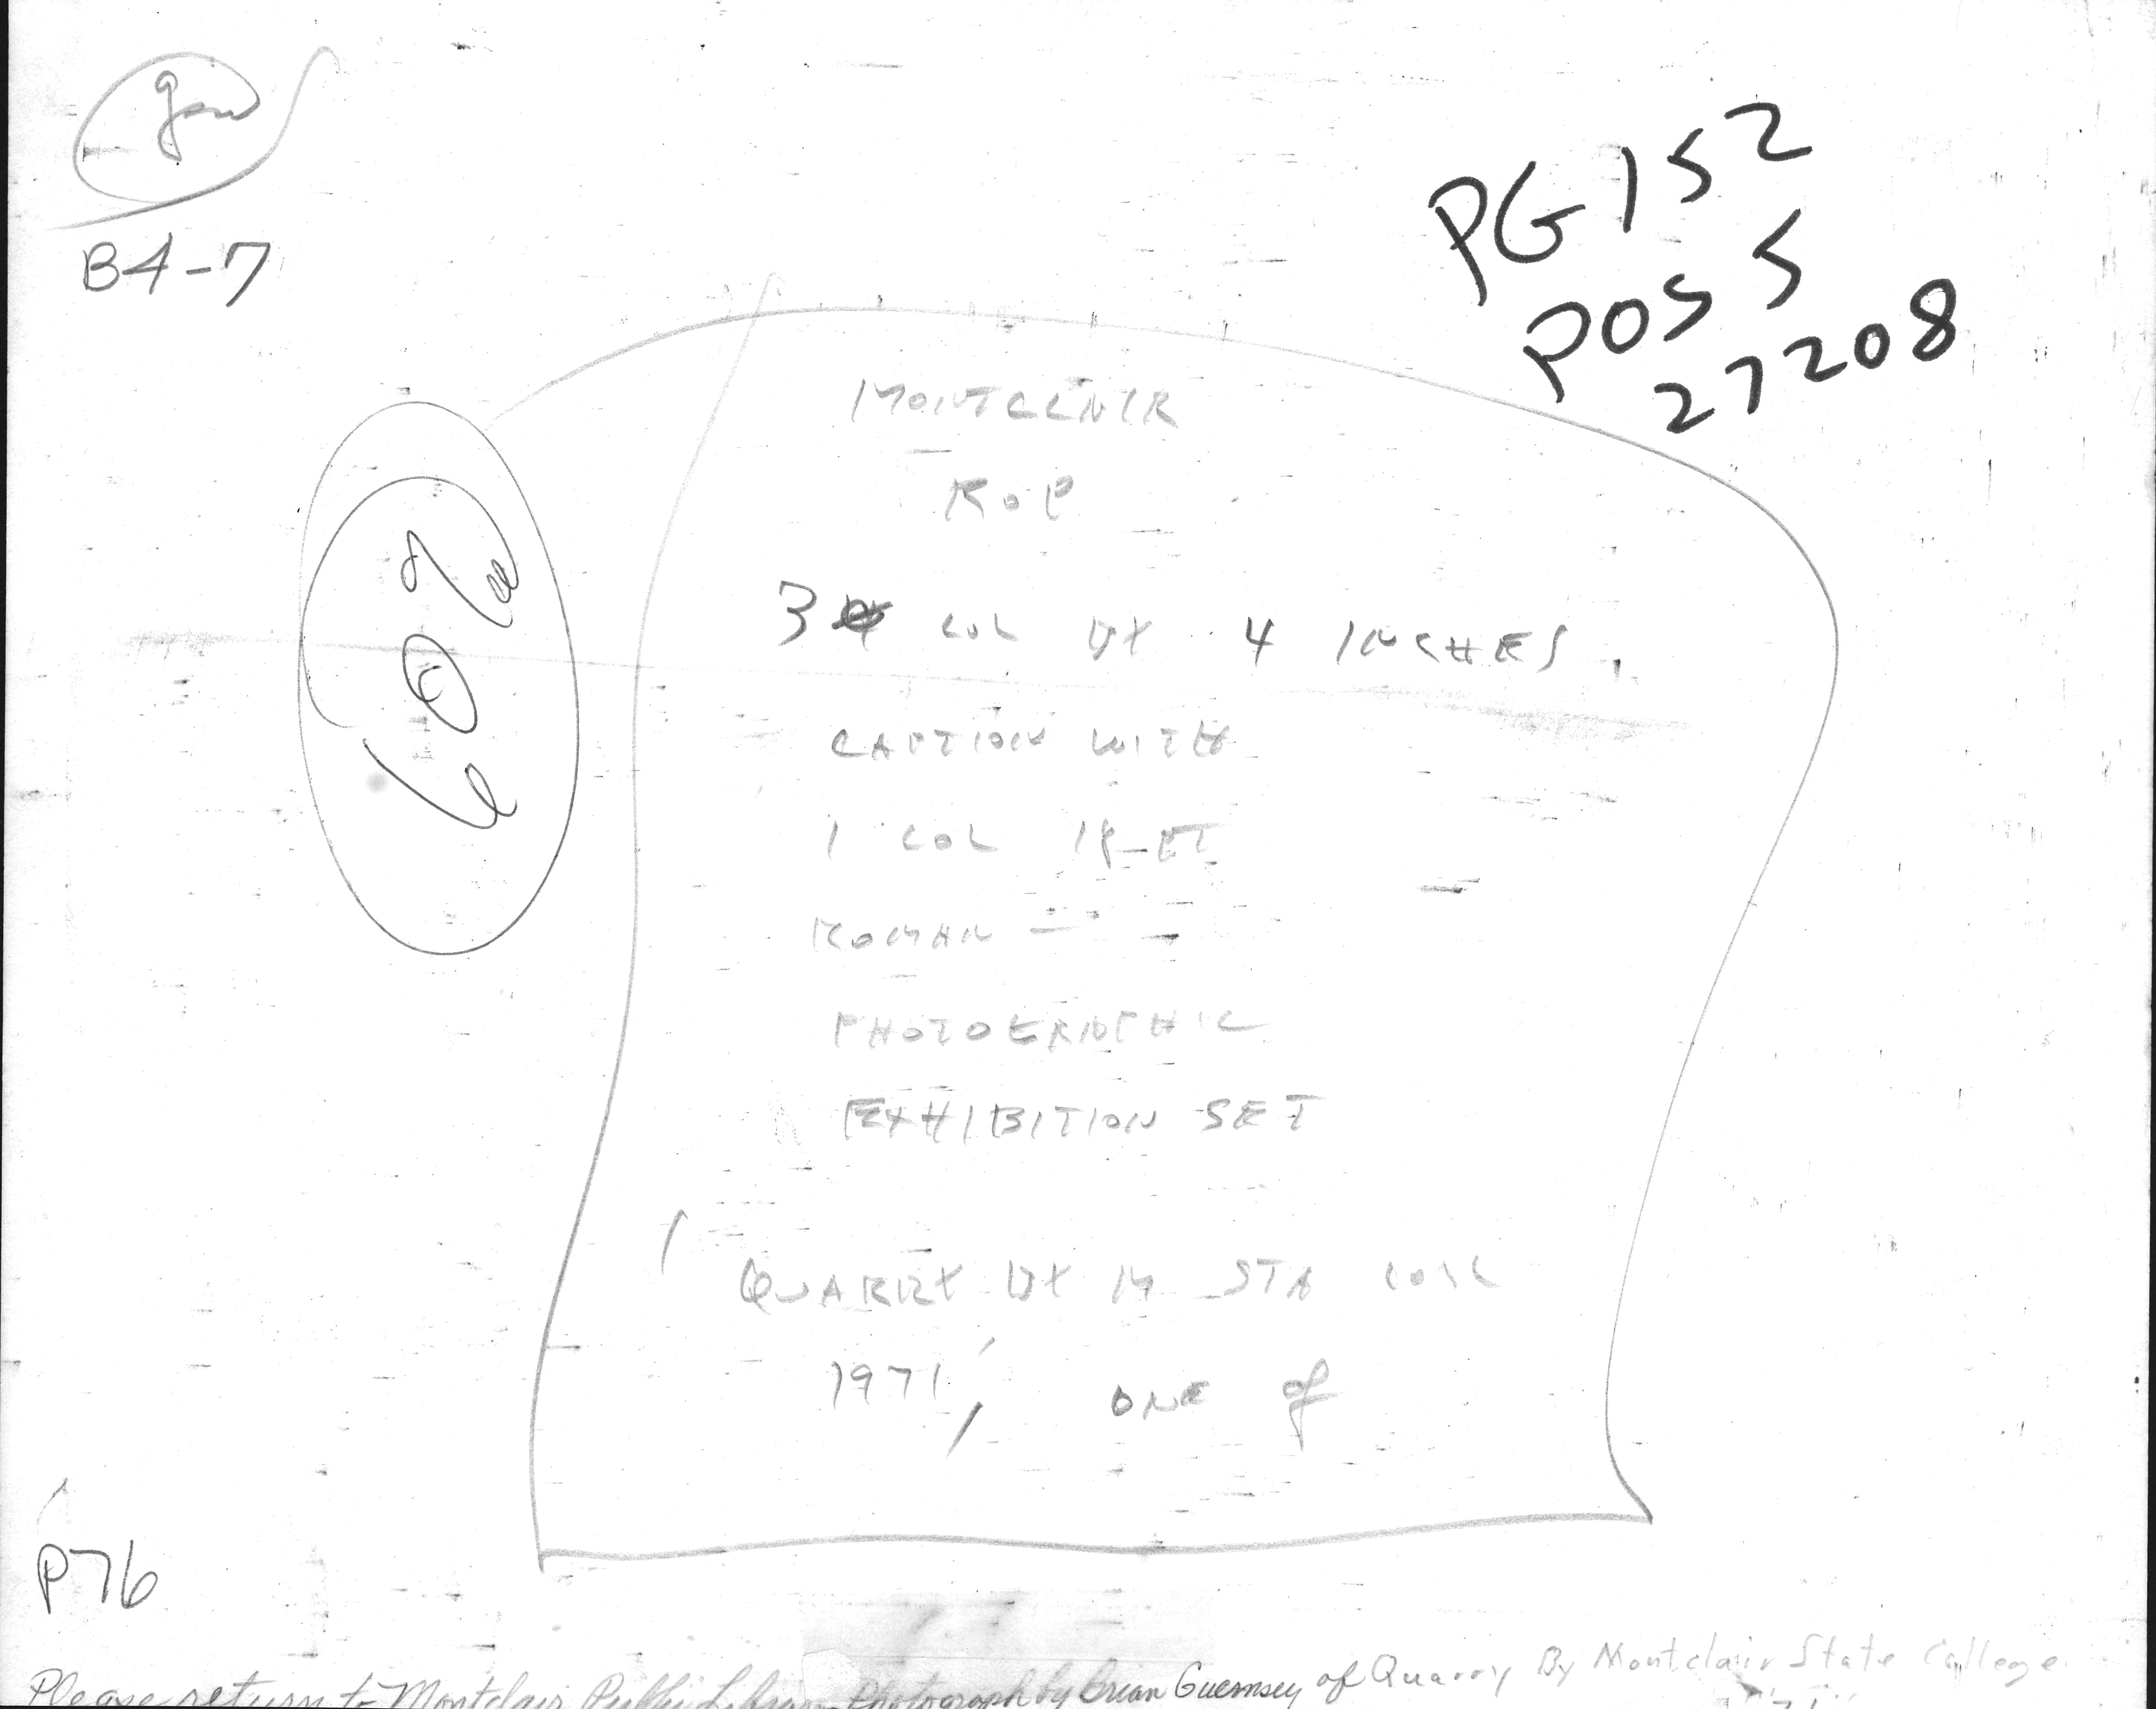 B4-7
PG 152
POS 5
27208
60%
MONTCLAIR
ROP
3 COL BY 4 INCHES.
CAPTION WITH
1 COL 18 PT
ROMAN —
PHOTOGRAPHIC
EXHIBITION SET
QUARRY BY M STA COLL
1971, ONE of
P76
Please return to Montclair Public Library Photograph by Brian Guernsey of Quarry By Montclair State College